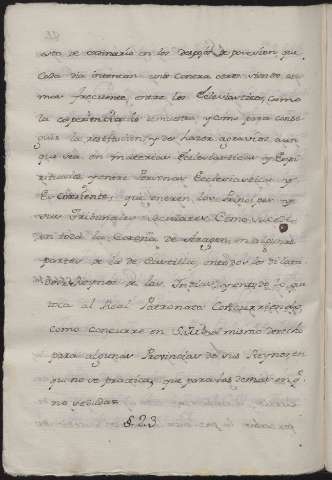 esto de ordinario en los despojos de posesion que
cada dia intentan unos contra otros siendo es
mas frecuente entre los Eclesiasticos, como
la experiencia lo muestra, y como para conse
guir la restitucion, y des hazer agravios aun
que sea en materias Eclesiasticas y Espi
rituales y entre Personas Eclesiasticas y
es corriente, que entren los Principes y
sus Tribunales seculares Como sucede
en toda la Corona de Aragon, en algunas
partes de la de Castilla, en todos los dilata
dos Reynos de las Indias, y en todo lo que
toca al Real Patronato Concurriendo,
como concurre en S. M. el mismo derecho
para algunas Provincias de sus Reynos en
qu. no se practica, que para las demas en q.
no se duda